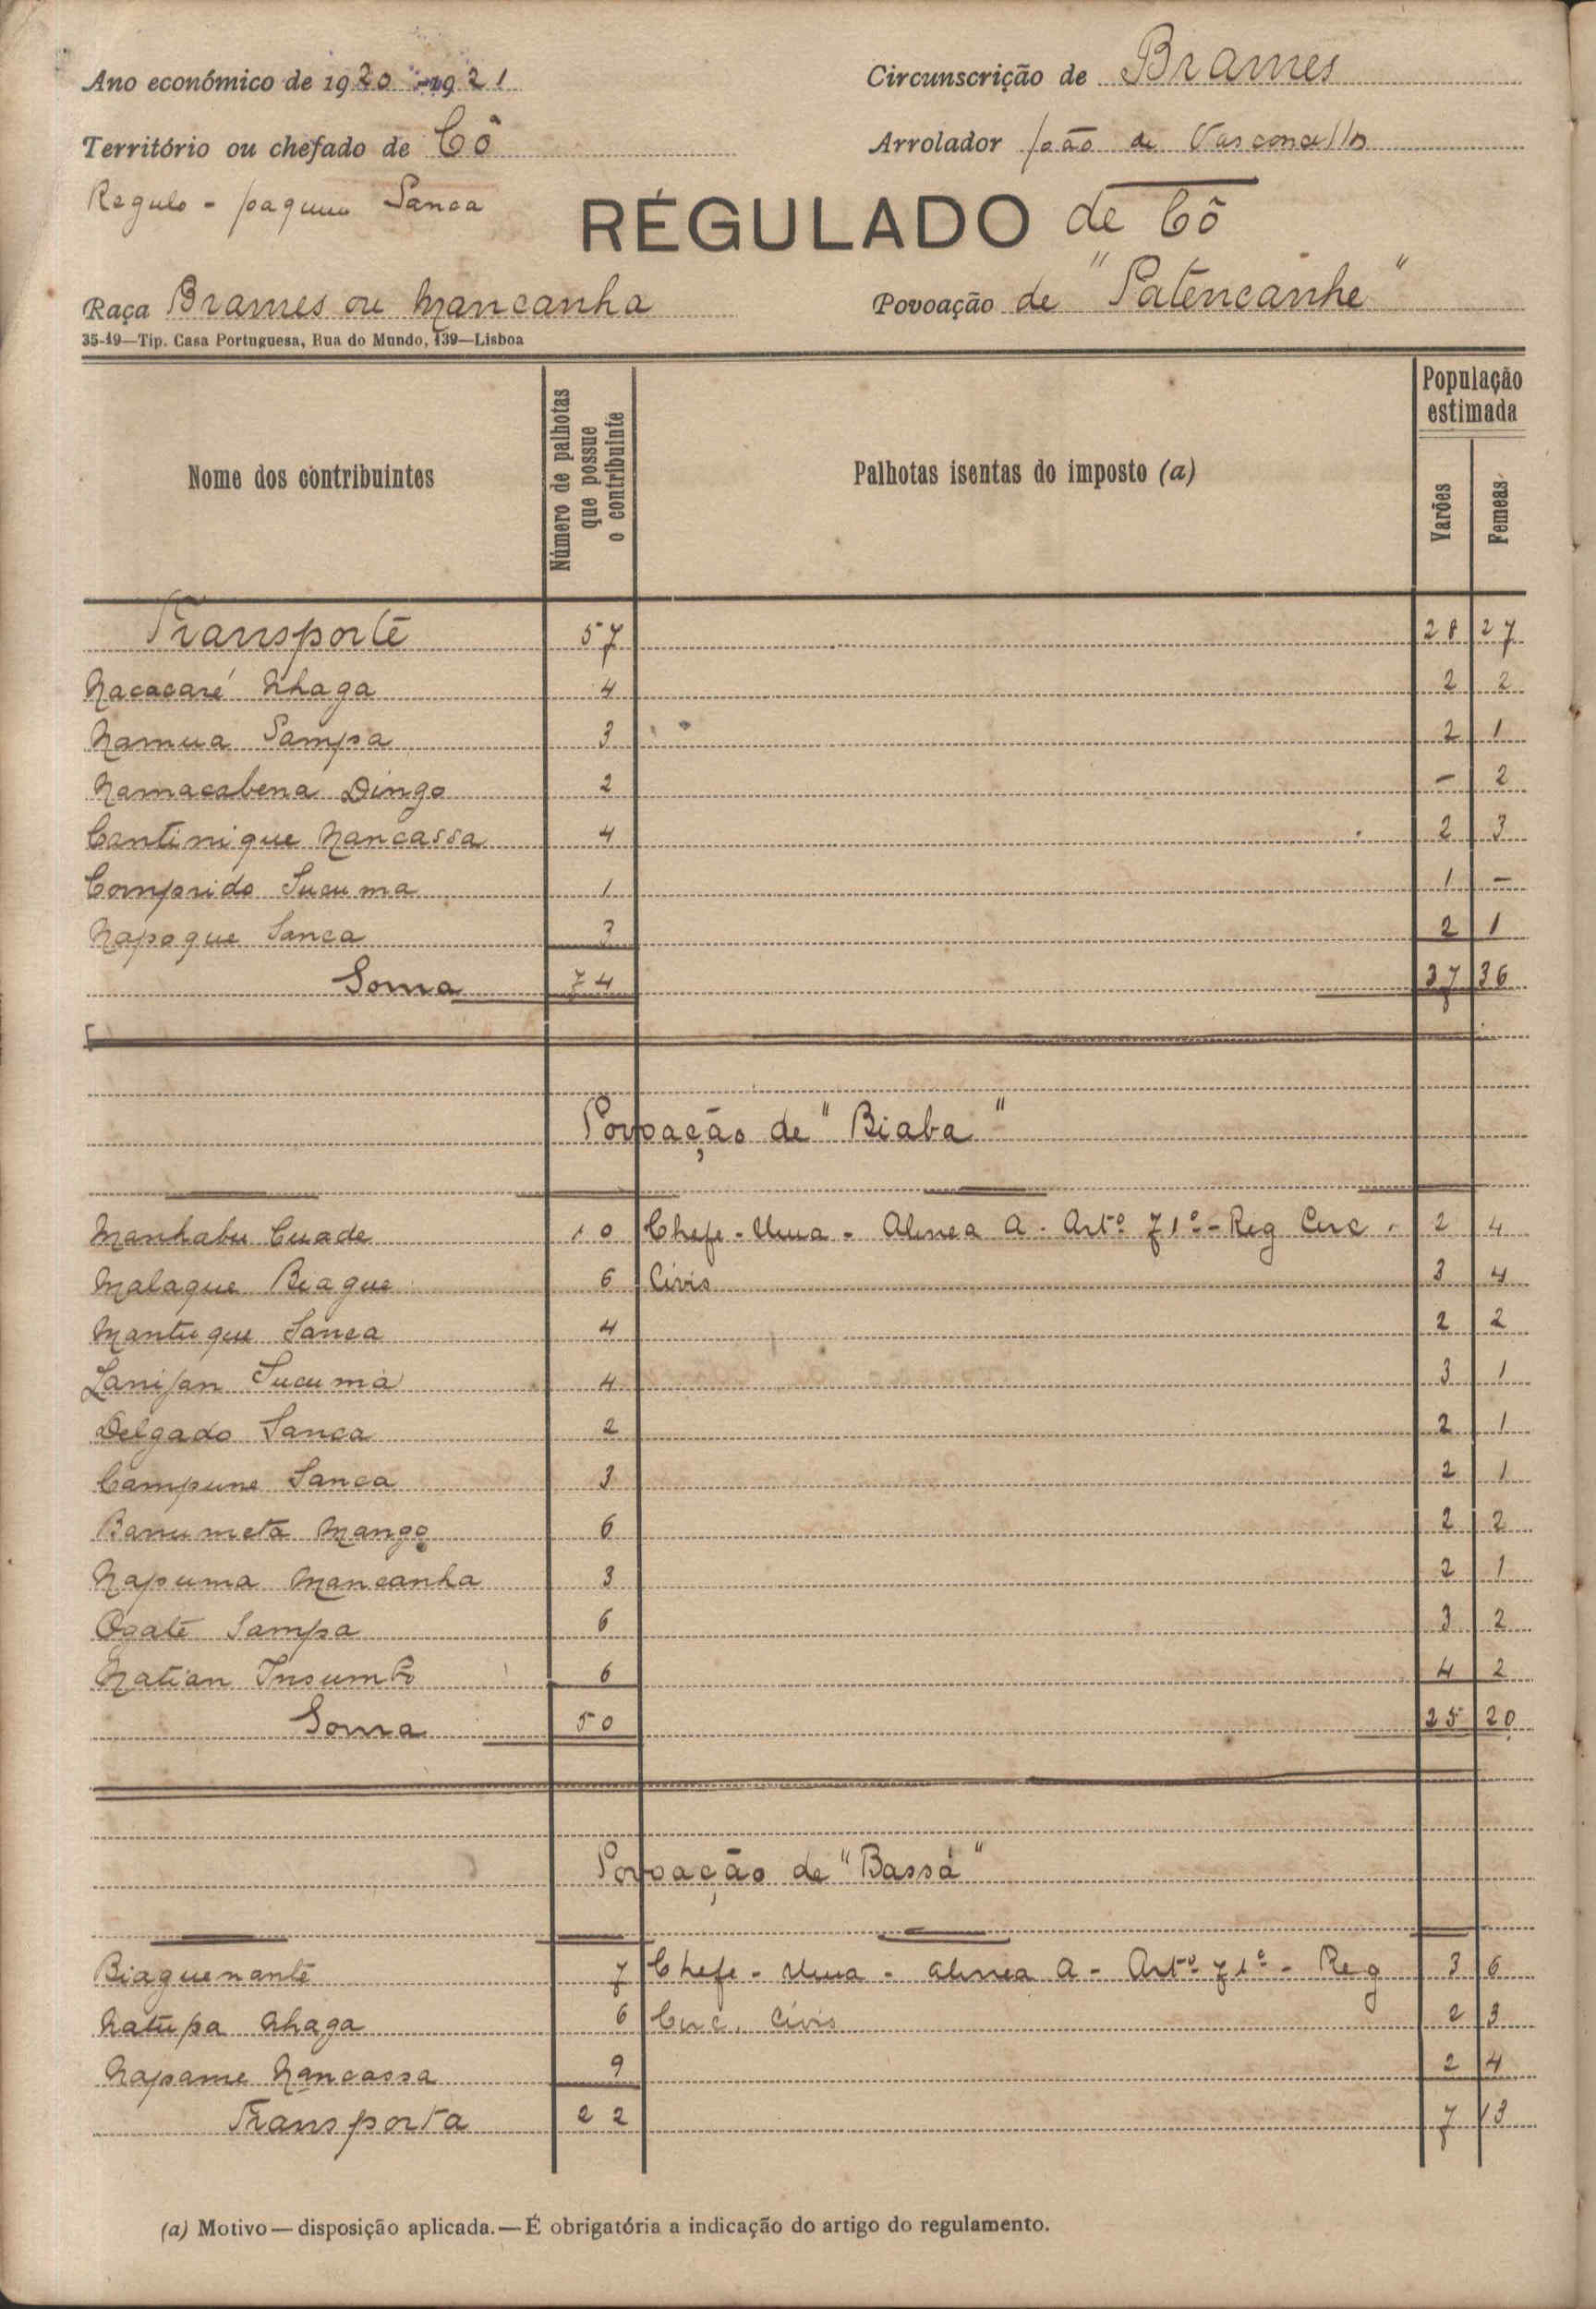 Ano económico de 1920-1921
Circunscrição de Brames
Território ou chefado de Cô
Arrolador João de Vasconcellos
Regulo - Joaquim Sanca
RÉGULADO de Cô
Raça Brames ou Mancanha
Povoação de "Patencanhe"
35-19—Tip. Casa Portuguesa, Rua do Mundo, 139—Lisboa
Nome dos contribuintes
Número de palhotas que possue o contribuinte
Palhotas isentas do imposto (a)
População estimada
Varões
Femeas
Transporte 57 28 27
Nacacaré Nhaga 4 2 2
Namua Sampa 3 2 1
Namacabena Dingo 2 — 2
Cantinique Nancassa 4 2 3
Comprido Sucuma 1 1 —
Napoque Sanca 3 2 1
Soma 74 37 36
Povoação de "Biaba"
Manhabu Cuade 10 Chefe - Uma - Alinea A - Artº 71º - Reg Circ. 2 4
Malaque Biague 6 Civis 3 4
Mantuque Sanca 4 2 2
Lanijan Sucuma 4 3 1
Delgado Sanca 2 2 1
Campune Sanca 3 2 1
Banumeta Mango 6 2 2
Napuma Mancanha 3 2 1
Ogate Sampa 6 3 2
Natian Insumbo 6 4 2
Soma 50 25 20
Povoação de "Bassá"
Biaguenante 7 Chefe - Uma - alinea A - Artº 71º - Reg 3 6
Natupa Nhaga 6 Circ. Civis 2 3
Napame Nancassa 9 2 4
Transporta 22 7 13
(a) Motivo — disposição aplicada. — É obrigatória a indicação do artigo do regulamento.